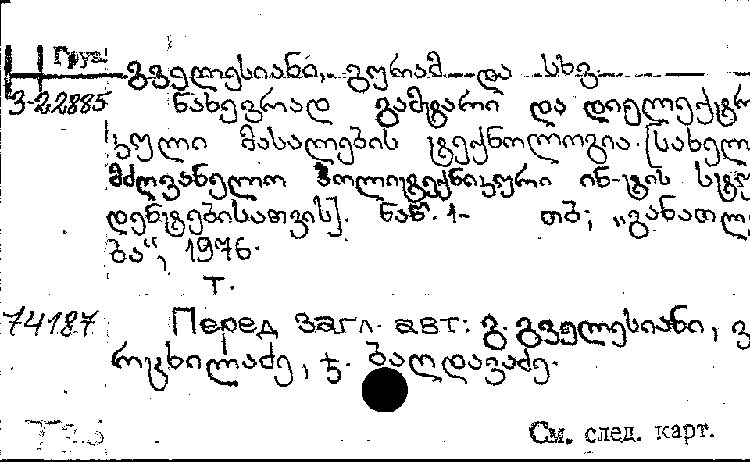 Груз.
გველესიანი, გურამ და სხვ.
3-22885 ნახევრად გამტარი და დიელექტრ
კული მასალების ტექნოლოგია. [სახელ
მძღვანელო პოლიტექნიკური ინ-ტის სტუ
დენტებისათვის]. ნაწ. 1- თბ; „განათლ
ბა“, 1976.
т.
74187 Перед загл. авт: გ. გველესიანი, ვ
ბაღდავაძე.
См. след. карт.